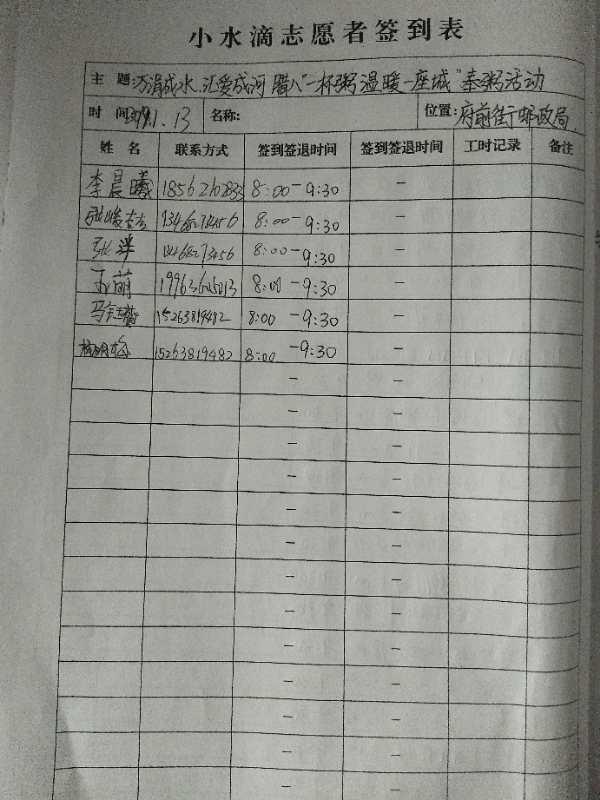 小水滴志愿者签到表
主 题:涓成水.汇爱成河 腊八"一杯粥 温暖一座城"奉粥活动
时 间 1.13 名称: 位置:府前街邮政局
姓 名 联系方式 签到签退时间 签到签退时间 工时记录 备注
李晨曦 8:00-9:30 -
8:00-9:30 -
张萍 8:00-9:30 -
王萌 8:00-9:30 -
马 15263819482 8:00-9:30 -
15263819482 8:00-9:30 -
- -
- -
- -
- -
- -
- -
- -
- -
- -
- -
- -
- -
- -